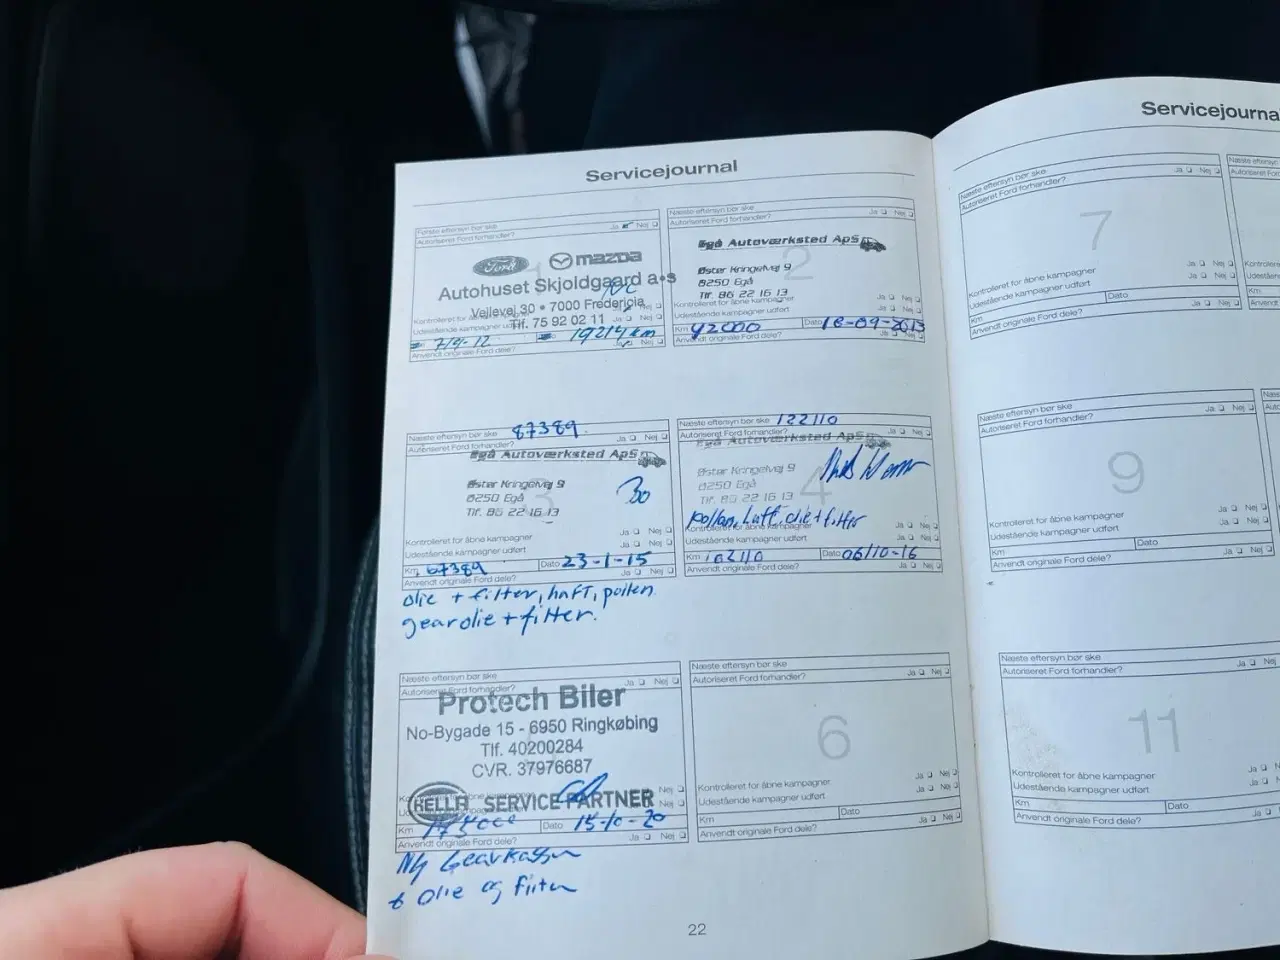 Servicejournal
Første eftersyn bør ske
Autoriseret Ford forhandler? Ja Nej
Ford mazda
Autohuset Skjoldgaard a•s
Vejlevej 30 • 7000 Fredericia
Tlf. 75 92 02 11
Udestående kampagner
7/9-12 19214 km
Anvendt originale Ford dele? Ja Nej
Næste eftersyn bør ske
Autoriseret Ford forhandler? Ja Nej
2
Egå Autoværksted ApS
Øster Kringelvej 9
8250 Egå
Tlf. 86 22 16 13
Kontrolleret for åbne kampagner Ja Nej
Udestående kampagner udført Ja Nej
Km 42000 Dato 18-09-2013
Anvendt originale Ford dele? Ja Nej
Næste eftersyn bør ske 87389
Autoriseret Ford forhandler? Ja Nej
3
Egå Autoværksted ApS
Øster Kringelvej 9
8250 Egå
Tlf. 86 22 16 13
Kontrolleret for åbne kampagner Ja Nej
Udestående kampagner udført Ja Nej
Km 67389 Dato 23-1-15
Anvendt originale Ford dele? Ja Nej
olie + filter, luft, pollen
gearolie + filter.
Næste eftersyn bør ske 122110
Autoriseret Ford forhandler? Ja Nej
4
Egå Autoværksted ApS
Øster Kringelvej 9
8250 Egå
Tlf. 86 22 16 13
pollen, luft, olie + filter
Kontrolleret for åbne kampagner Ja Nej
Udestående kampagner udført Ja Nej
Km 102110 Dato 06/10-16
Anvendt originale Ford dele? Ja Nej
Næste eftersyn bør ske
Autoriseret Ford forhandler? Ja Nej
Protech Biler
No-Bygade 15 - 6950 Ringkøbing
Tlf. 40200284
CVR. 37976687
HELLA SERVICE PARTNER
Km Dato 15-10-20
Anvendt originale Ford dele? Ja Nej
Ny Gearkasse
+ Olie og filter
Næste eftersyn bør ske
Autoriseret Ford forhandler? Ja Nej
6
Kontrolleret for åbne kampagner Ja Nej
Udestående kampagner udført Ja Nej
Km Dato
Anvendt originale Ford dele? Ja Nej
22
Servicejourna
Næste eftersyn bør ske
Autoriseret Ford forhandler? Ja Nej
7
Kontrolleret for åbne kampagner Ja Nej
Udestående kampagner udført Ja Nej
Km Dato
Anvendt originale Ford dele? Ja Nej
Næste eftersyn
Autoriseret For
Næste eftersyn bør ske
Autoriseret Ford forhandler? Ja Nej
9
Kontrolleret for åbne kampagner Ja Nej
Udestående kampagner udført Ja Nej
Km Dato
Anvendt originale Ford dele? Ja Nej
Næste eftersyn bør ske
Autoriseret Ford forhandler? Ja Nej
11
Kontrolleret for åbne kampagner Ja
Udestående kampagner udført Ja
Km Dato
Anvendt originale Ford dele? Ja